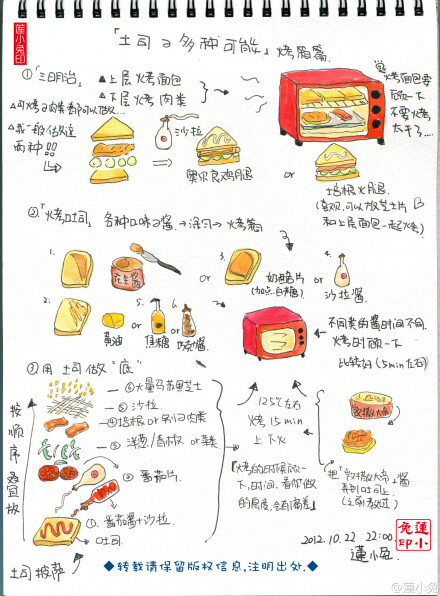 蓮小兔印
「土司的多种可能」烤箱篇
①「三明治」
▲上层烤面包
▲下层烤肉类
△可烤的肉类都可以做…
△我一般做这两种!!
沙拉
奥尔良鸡腿
or
培根火腿
(喜欢可以放芝士片
和上层面包一起烤)
烤面包要
顾一下
不要烤
太干了…
②「烤吐司」各种口味的酱→涂匀→烤箱
1.
花生酱
or
3.
奶酪片
(加点白糖)
or
4.
沙拉酱
2.
黄油
or
5.
焦糖
or
6.
巧克酱
→不同类的酱时间不同
烤时顾一下
比较好(5min左右)
③用土司做“底”
按顺序叠放
⑥大量马苏里芝士
⑤沙拉
④培根 or 别的肉类
③洋葱/青椒 or 菜类
②番茄片
①番茄酱+沙拉
吐司
土司披萨
125℃左右
烤15min
上下火
「烤的时候顾一
下,时间,看你做
的厚度,会有偏差」
把
酱
弄到吐司上
2012.10.22 22:00
蓮小兔
蓮小兔印
◆转载请保留版权信息,注明出处.◆
@蓮小兔